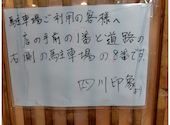 駐車場ご利用の客様へ
店の手前の1番と道路の
右側の駐車場の8番です
四川印象